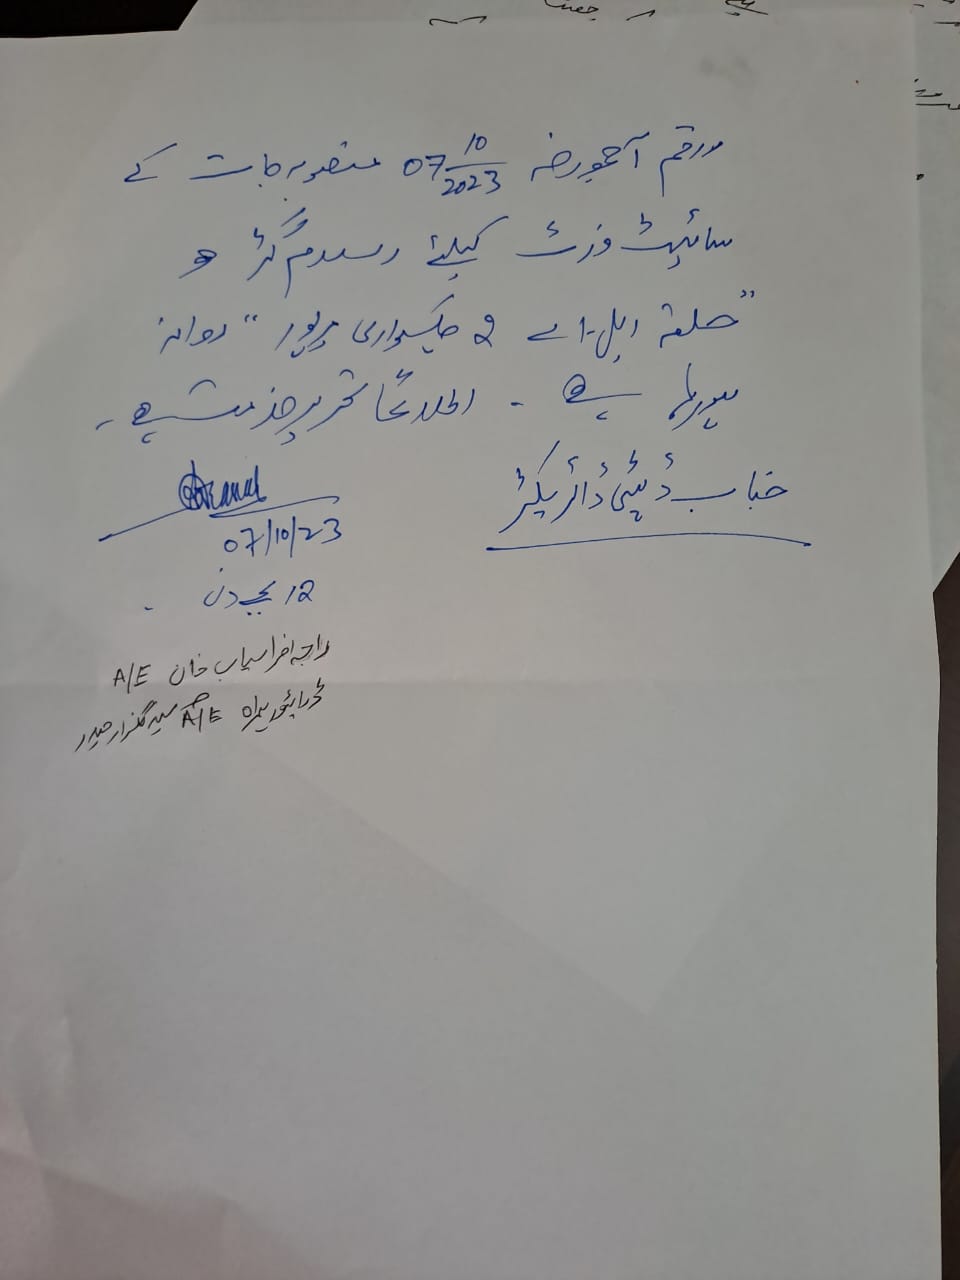 من رقم آجمورخہ 07 10/2023 منصوبہ جات کے
سائیٹ وزٹ کیلئے اسلام گڑھ
"حلقہ ایل اے 2 چکسواری میرپور" روانہ
ہو رہا ہے ۔ اطلاعاً تحریر خدمت ہے ۔
جناب ڈپٹی ڈائریکٹر
07/10/23
12 بجے دن ۔
راجہ افراسیاب خان A/E
سید گلزار حیدر A/E ہمراہ ڈرائیور